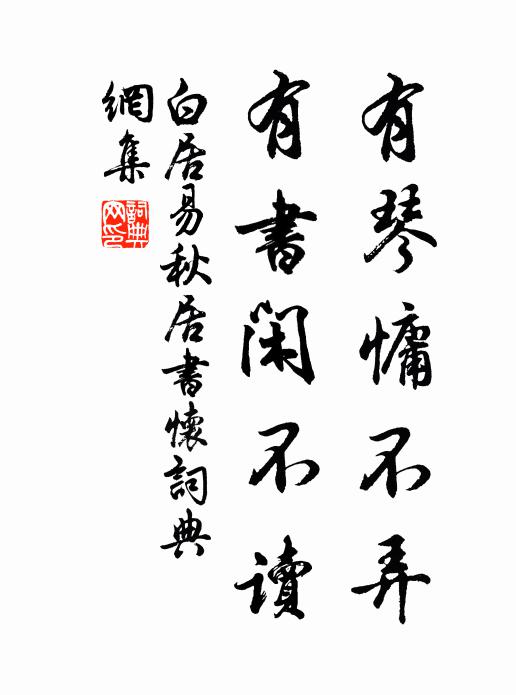 有琴慵不弄
有書閑不讀
白居易秋居書懷詞典
網集
詞典
网印